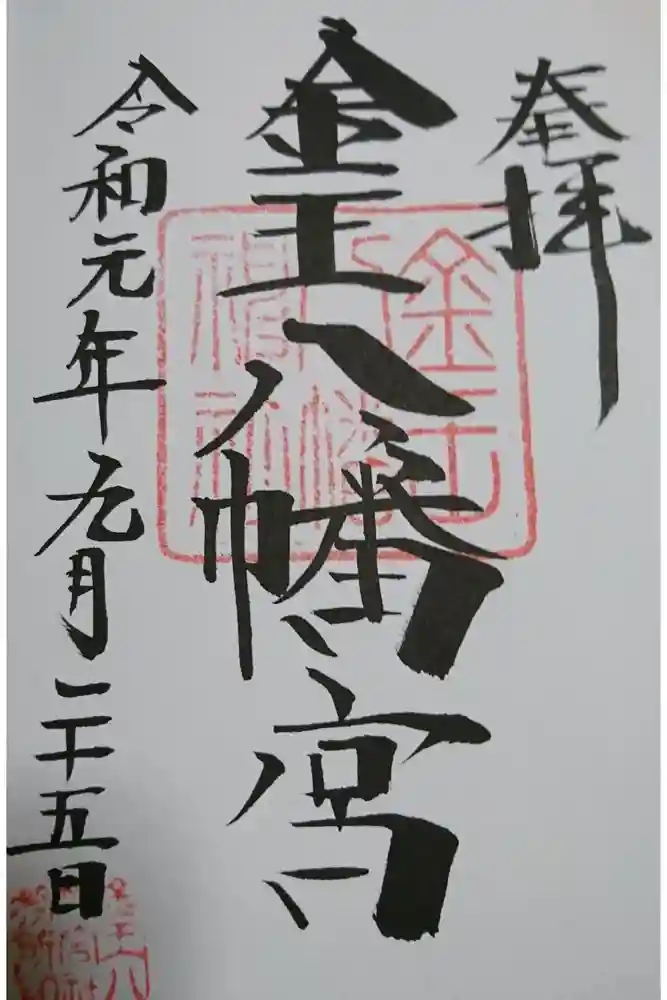 奉拝
金王八幡宮
令和元年九月二十五日
金王八幡神社